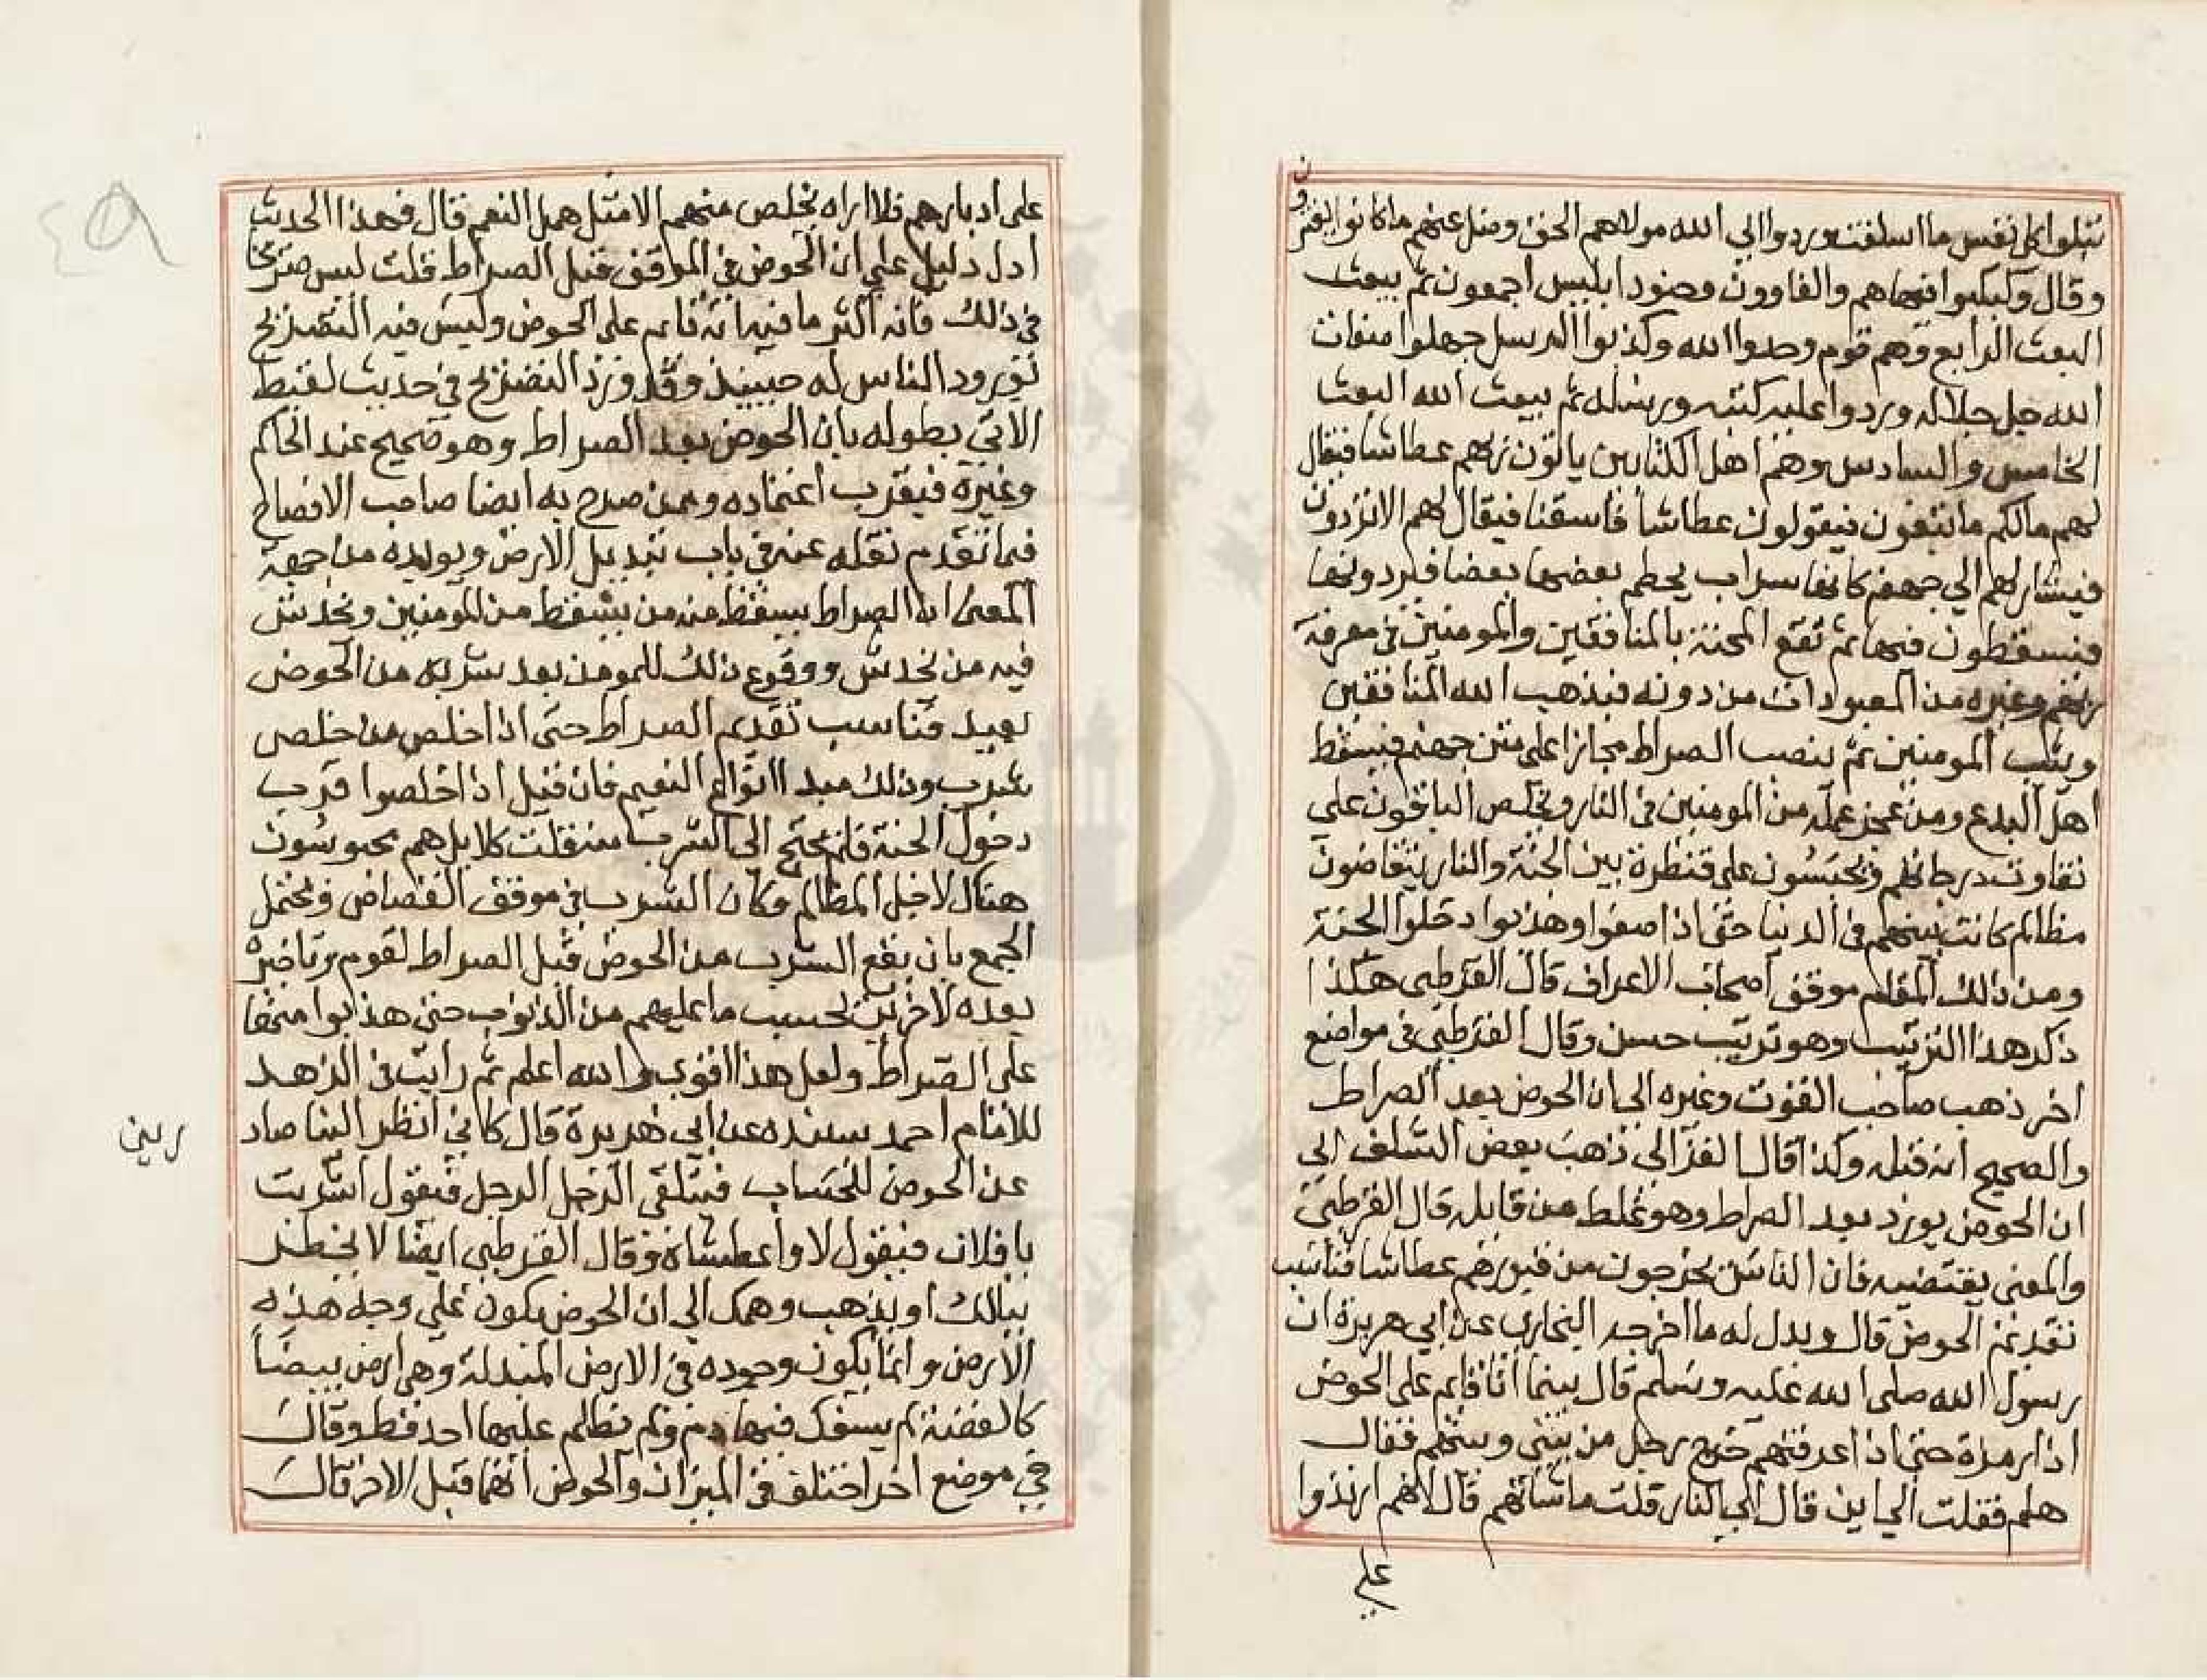 تتلوا كل نفس ما اسلفت وردوا الي الله مولاهم الحق وضل عنهم ما كانوا يفترون
وقال وكبكبوا فيها هم والغاوون وجنود ابليس اجمعون ثم يبعث
البعث الرابع وهم قوم وحدوا الله وكذبوا الرسل جهلوا صفات
الله جل جلاله وردوا عليه كتبه ورسله ثم يبعث الله البعث
الخامس والسادس وهم اهل الكتابين ياتون ربهم عطاشا فيقال
لهم مالكم ما تبغون فيقولون عطاشا فاسقنا فيقال لهم الا تردون
فيشار لهم الي جهنم كانها سراب يحطم بعضها بعضا فيردونها
فيسقطون فيها ثم تقع المحنة بالمنافقين والمومنين في معرفة
ربهم وغيره من المعبودات من دونه فيذهب الله المنافقين
ويثبت المومنين ثم ينصب الصراط مجازا علي متن جهنم فيسقط
اهل البدع ومن عجز عمله من المومنين في النار ويخلص الباقون علي
تفاوت درجاتهم ويحبسون علي قنطرة بين الجنة والنار يتقاضون
مظالم كانت بينهم في الدنيا حتي اذا صفوا وهذبوا دخلوا الجنة
ومن ذلك المقام موقف اصحاب الاعراف قال القرطبي هكذا
ذكر هذا الترتيب وهو ترتيب حسن وقال القرطبي في مواضع
اخر ذهب صاحب القوت وغيره الي ان الحوض بعد الصراط
والصحيح انه قبله وكذا قال الغزالي ذهب بعض السلف الي
ان الحوض يورد بعد الصراط وهو غلط من قايله قال القرطبي
والمعني يقتضيه فان الناس يخرجون من قبورهم عطاشا فناسب
تقديم الحوض قال ويدل له ما اخرجه البخاري عن ابي هريرة ان
رسول الله صلي الله عليه وسلم قال بينما انا قايم علي الحوض
اذا زمرة حتي اذا عرفتهم خرج رجل من بيني وبينهم فقال
هلم فقلت الي اين قال الي النار قلت ما شانهم قال انهم ارتدوا
علي
علي ادبارهم فلا اراه يخلص منهم الا مثل همل النعم قال فهذا الحديث
ادل دليل علي ان الحوض في الموقف قبل الصراط قلت ليس صريحا
في ذلك فانه اكثر ما فيه انه قايم علي الحوض وليس فيه التصريح
بورود الناس له حينيذ وقد ورد التصريح في حديث لقيط
الاتي بطوله بان الحوض بعد الصراط وهو صحيح عند الحاكم
وغيره فيقرب اعتماده وممن صرح به ايضا صاحب الافصاح
فيما تقدم نقله عنه في باب تبديل الارض ويويده من جهة
المعني ان الصراط يسقط منه من يسقط من المومنين ويخدش
فيه من يخدش ووقوع ذلك للمومن بعد شربه من الحوض
بعيد فناسب تقديم الصراط حتي اذا خلص من خلص
شرب وذلك مبدا انواع النعيم فان قيل اذا خلصوا قرب
دخول الجنة فلم يحتج الي الشرب منه قلت كلا بل هم محبوسون
هناك لاجل المظالم فكان الشرب في موقف القصاص ويحتمل
الجمع بان يقع الشرب من الحوض قبل الصراط لقوم وتاخيره
بعده لاخرين بحسب ما عليهم من الذنوب حتي هذبوا منها
علي الصراط ولعل هذا اقوي والله اعلم ثم رايت في الزهد
للامام احمد بسنده عن ابي هريرة قال كاني انظر اليناصاد
رين
عن الحوض للحساب فيتلقي الرجل الرجل فيقول اشربت
يا فلان فيقول لا واعطشاه وقال القرطبي ايضا لا يخطر
ببالك او يذهب وهمك الي ان الحوض يكون علي وجه هذه
الارض وانما يكون وجوده في الارض المبدلة وهي ارض بيضا
كالفضة لم يسفك فيها دم ولم يظلم عليها احد قط وقال
في موضع اخر اختلف في الميزان والحوض ايهما قبل الاخر قال
٤٨